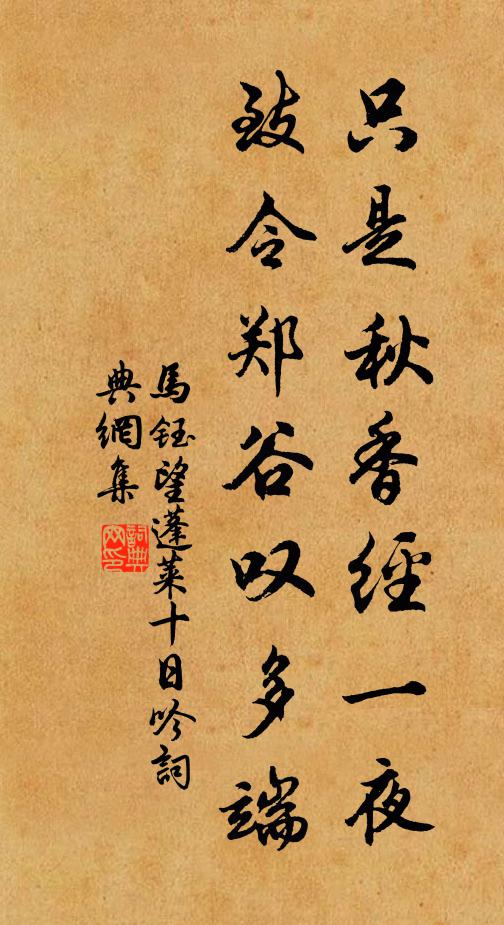 只是秋香經一夜
致令郑谷叹多端
馬鈺望蓬莱十日吟詞
典網集
詞典
网印